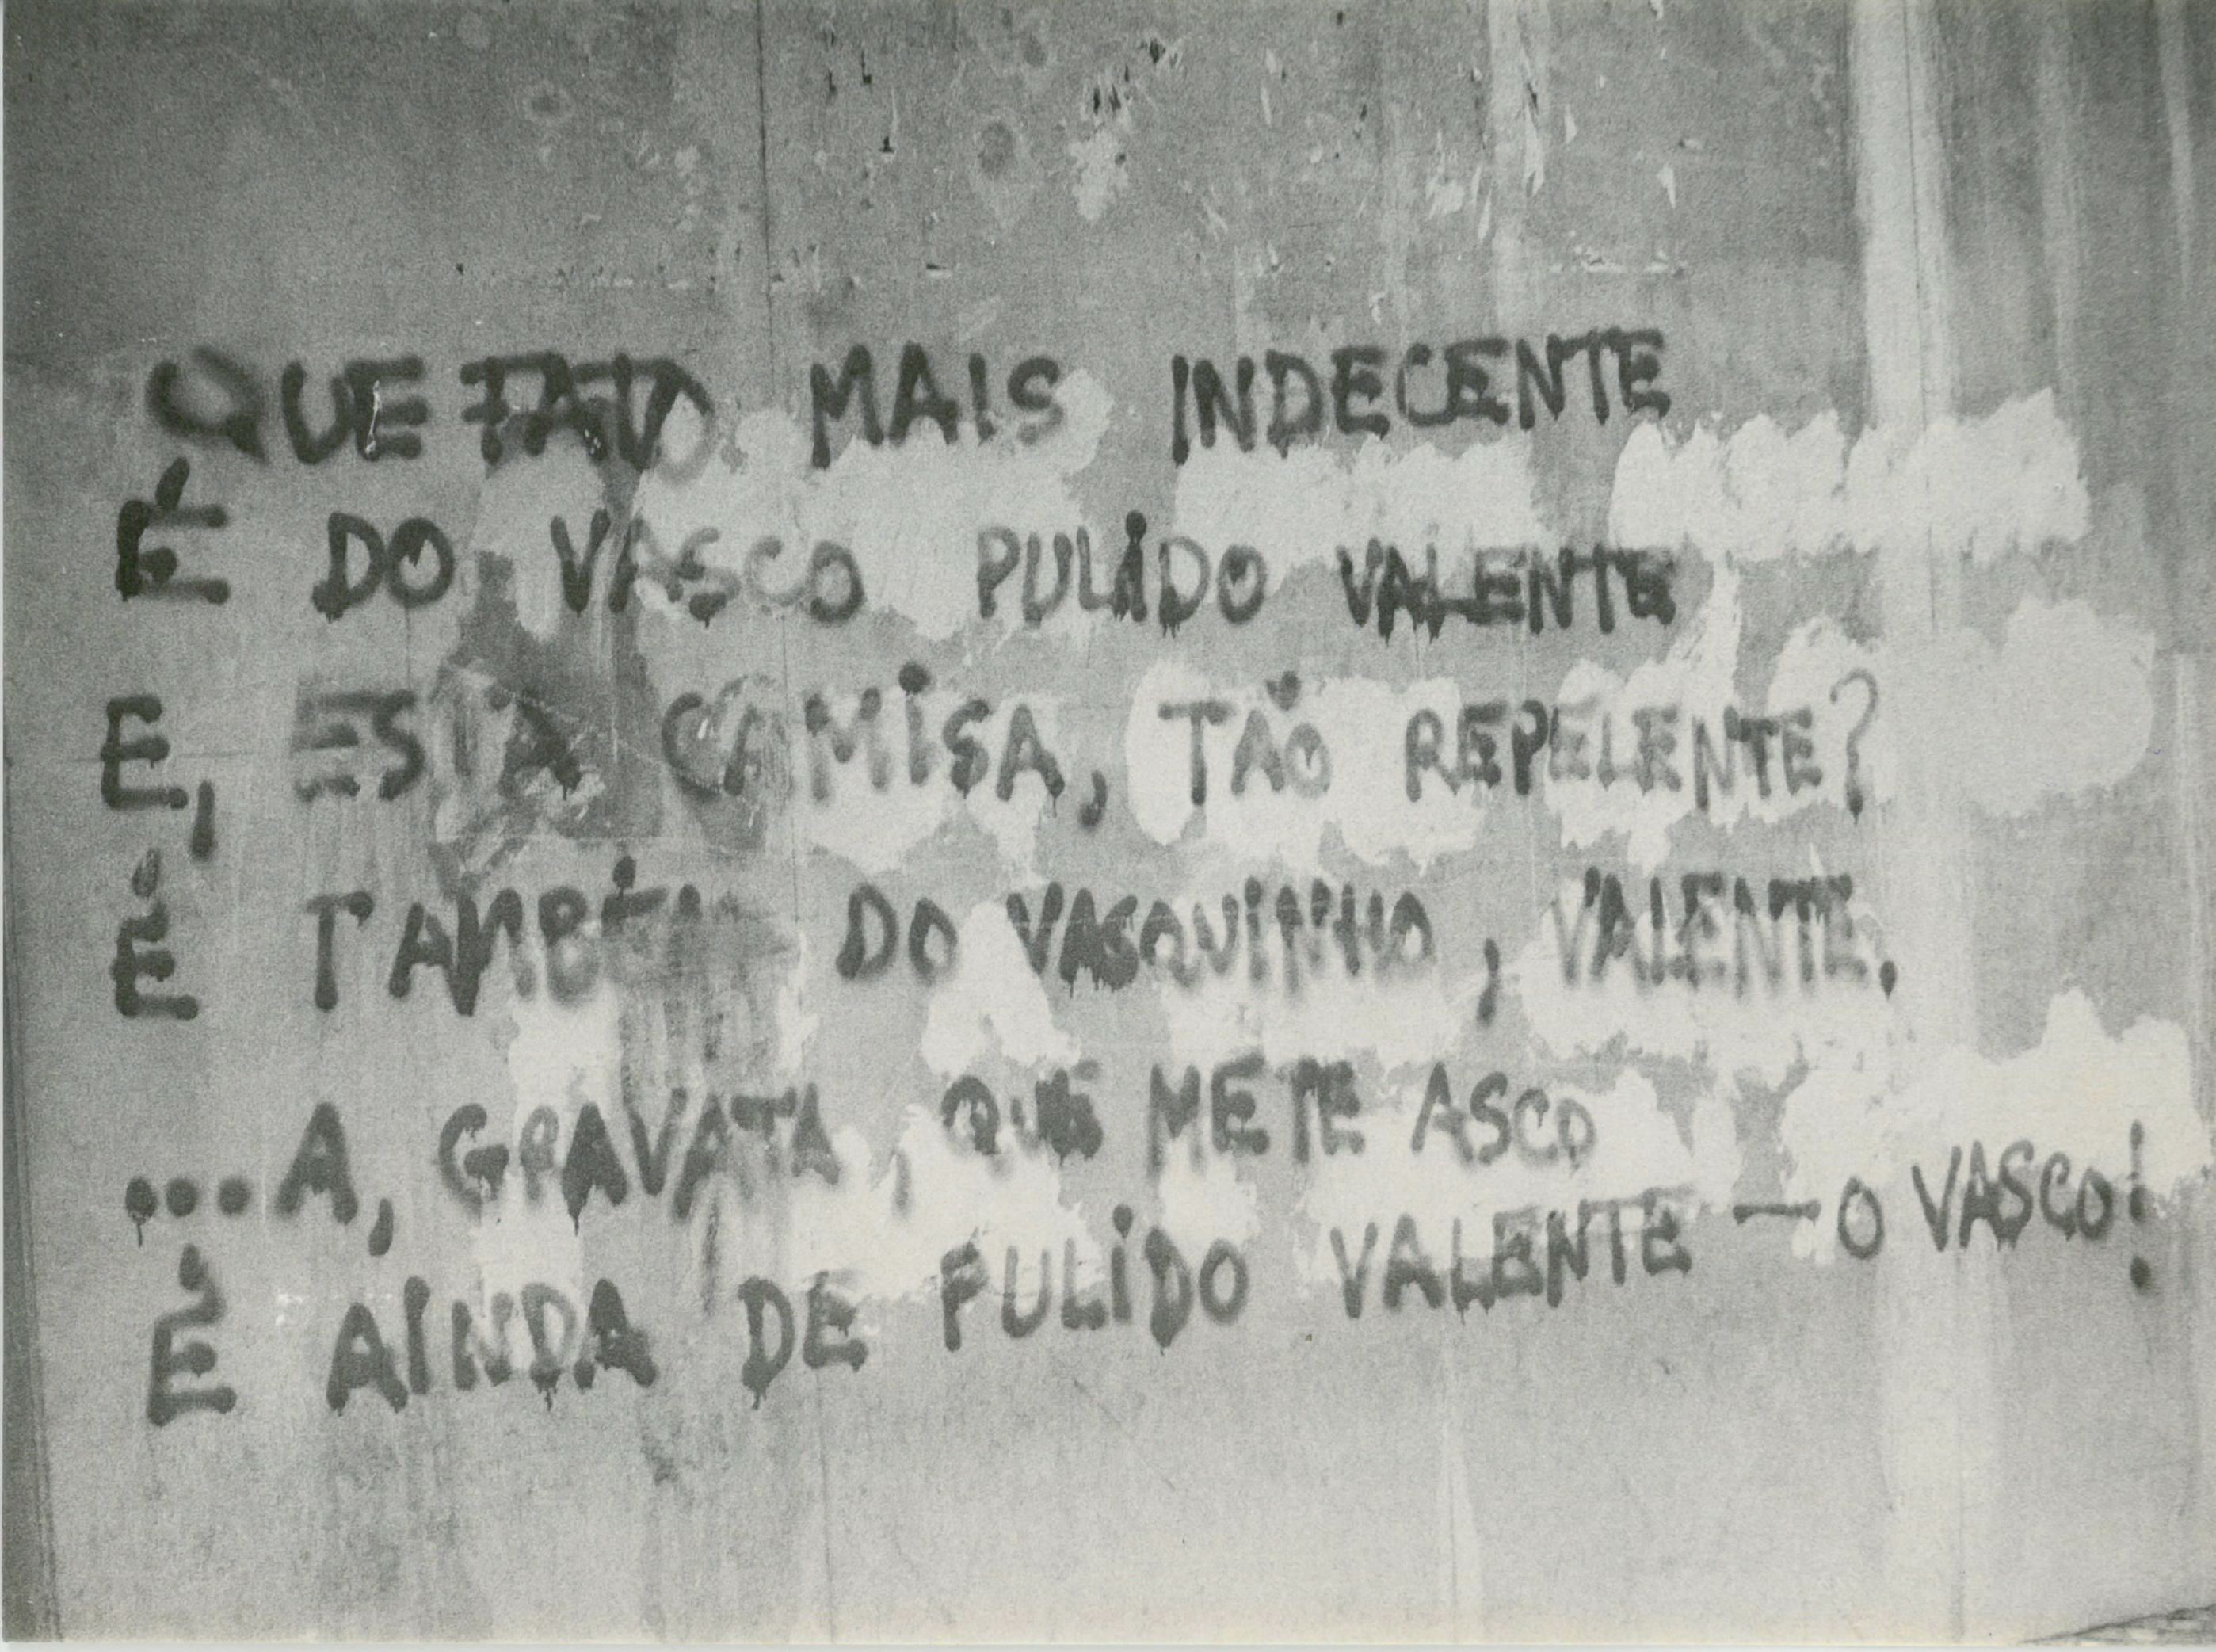 QUE FATO MAIS INDECENTE
É DO VASCO PULIDO VALENTE
E, ESTA CAMISA, TÃO REPELENTE?
É TAMBÉM DO VASQUINHO, VALENTE.
...A, GRAVATA, QUE METE ASCO
É AINDA DE PULIDO VALENTE — O VASCO!